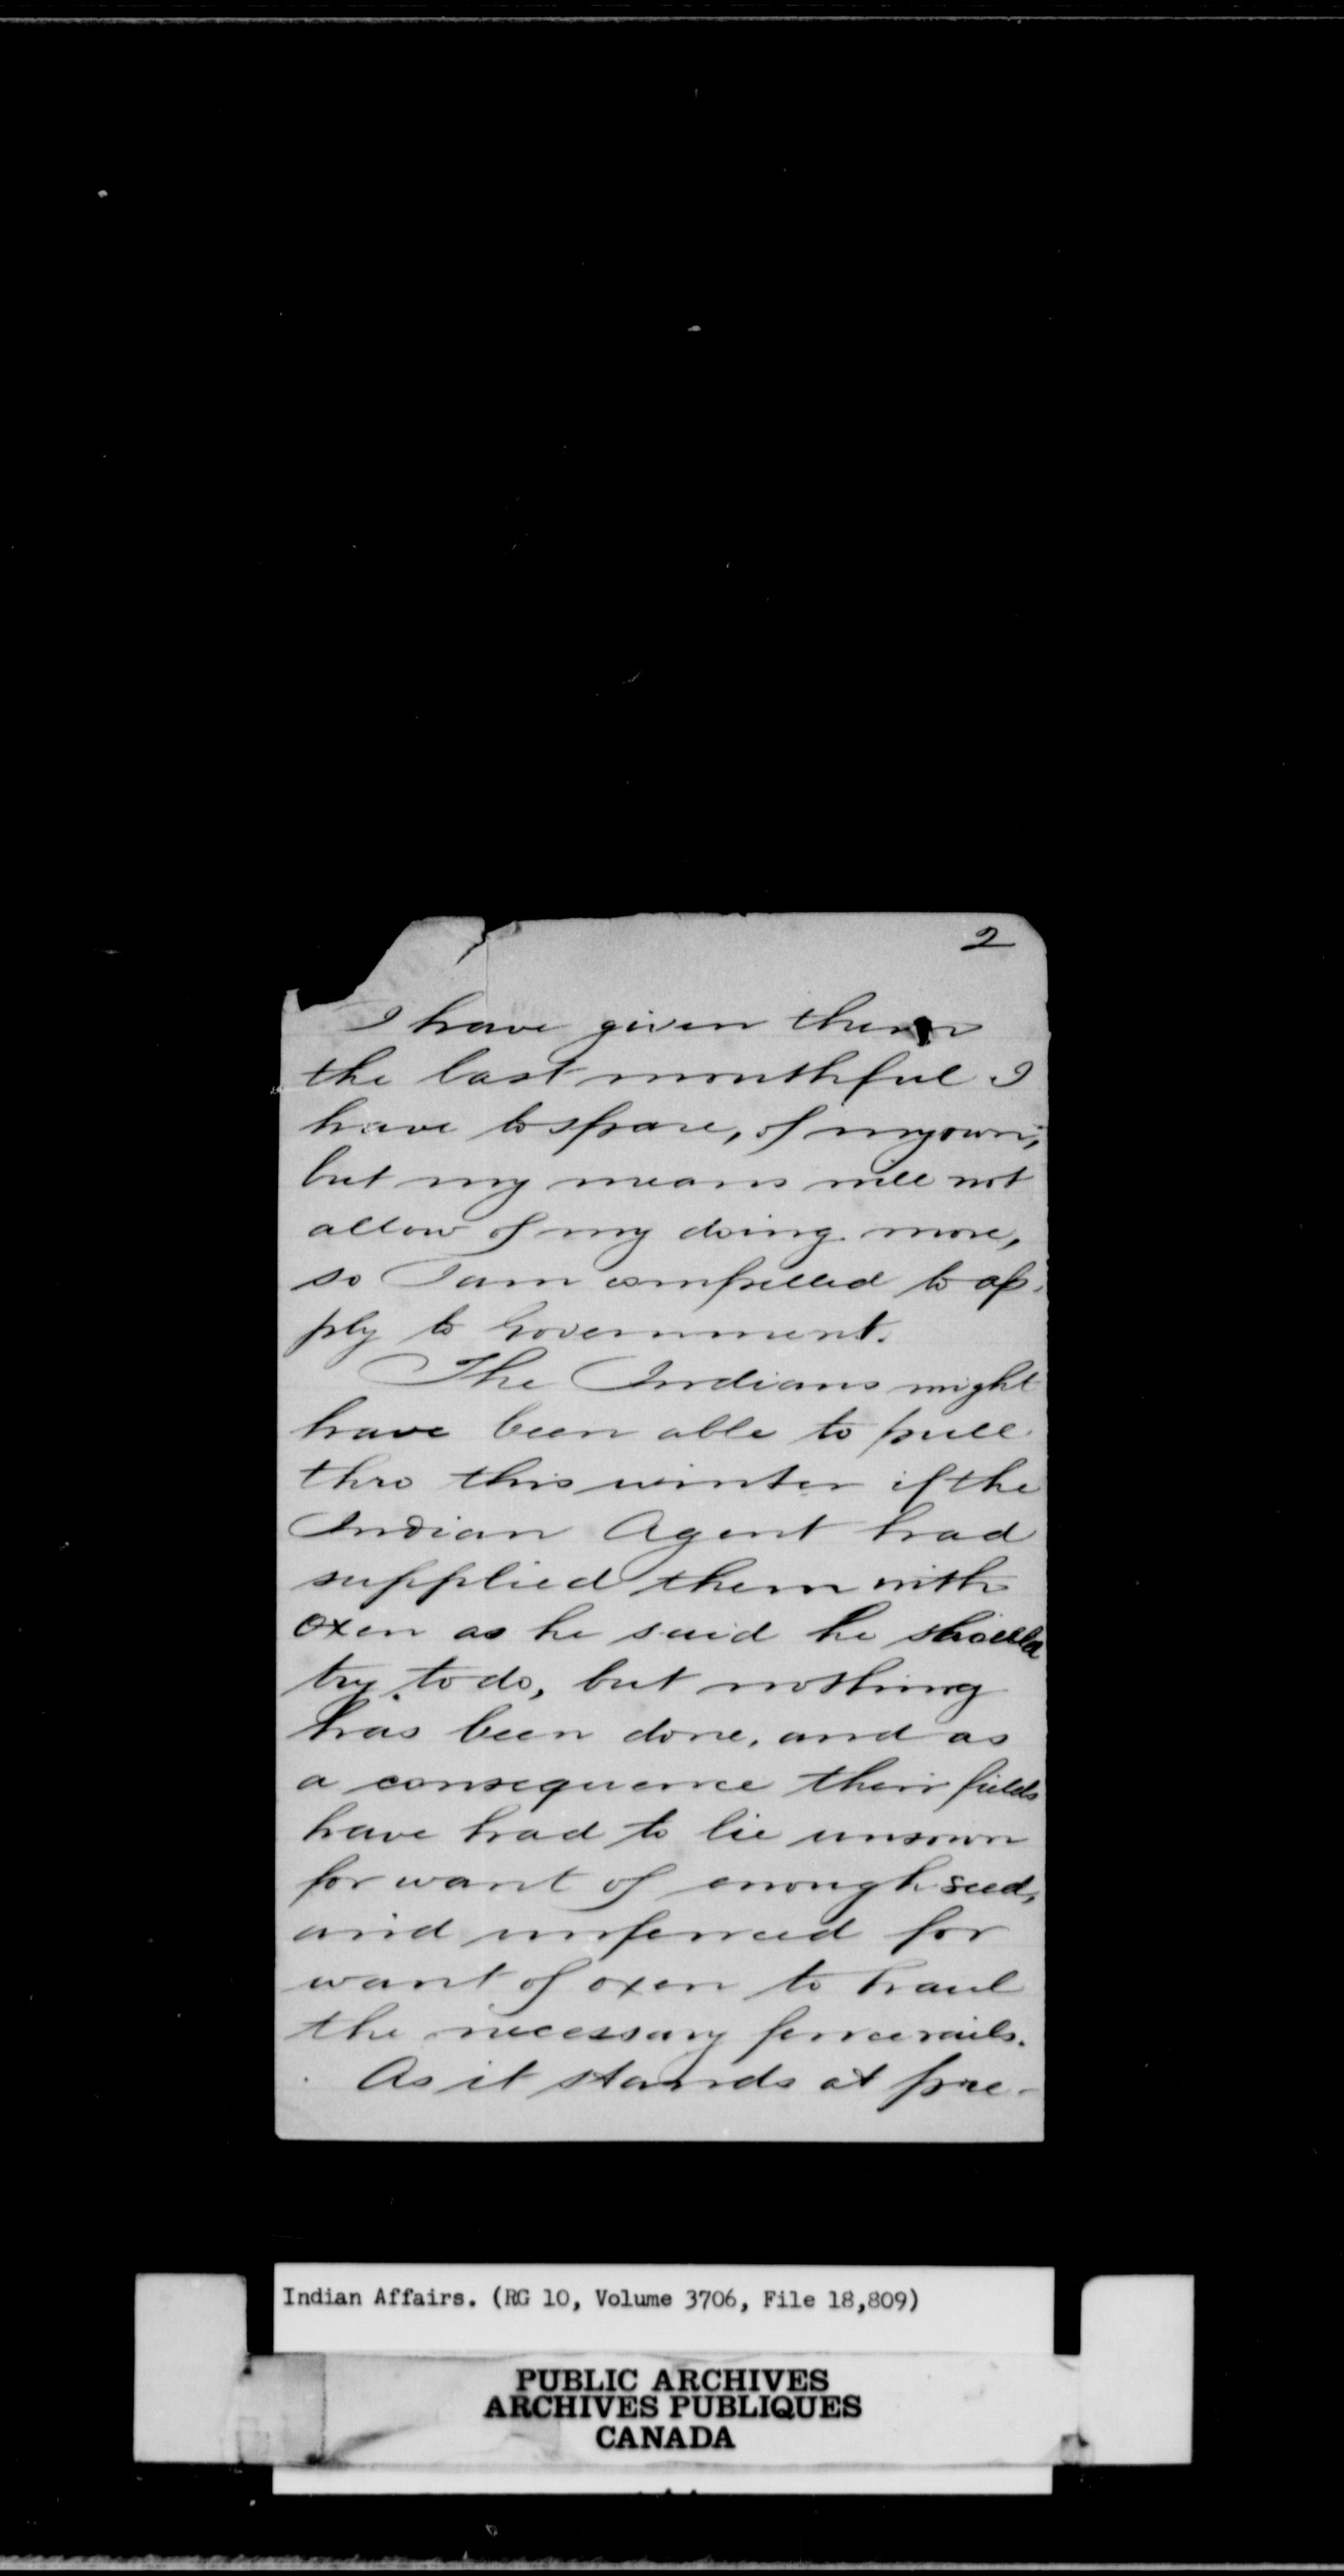 2
I have given them
the last mouthful I
have to spare, of my own,
but my means will not
allow of my doing more,
so I am compelled to ap-
ply to Government.
The Indians might
have been able to pull
thro this winter if the
Indian Agent had
supplied them with
oxen as he said he should
try to do, but nothing
has been done, and as
a consequence their fields
have had to lie unsown
for want of enough seed,
and unfenced for
want of oxen to haul
the necessary fence rails.
As it stands at pre-
Indian Affairs. (RG 10, Volume 3706, File 18,809)
PUBLIC ARCHIVES
ARCHIVES PUBLIQUES
CANADA